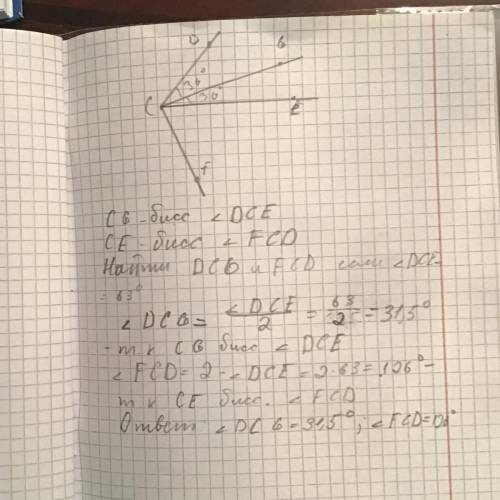 D
B
36°
36°
C
E
F
CB - бисс ∠DCE
CE - бисс ∠FCD
Найти DCB и FCD если ∠DCE
= 63°
∠DCB = ∠DCE/2 = 63/2 = 31,5°
- т к CB бисс ∠DCE
∠FCD = 2 · ∠DCE = 2·63 = 126° -
т к CE бисс. ∠FCD
Ответ ∠DCB = 31,5°; ∠FCD =